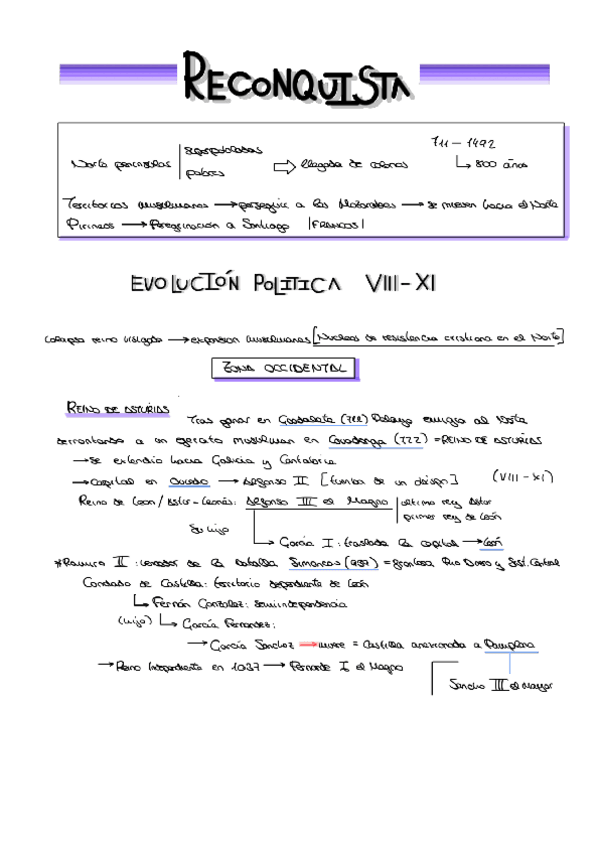 RECONQUISTA
711 - 1492
Norte peninsular superpobladas pobres ⇨ llegada de colonos ↳ 800 años
Territorios musulmanes → perseguir a los Mozarabes → se mueven hacia el Norte
Pirineos → Peregrinación a Santiago |FRANCOS|
EVOLUCIÓN POLITICA VIII-XI
colapso reino visigodo → expansion musulmanes [Nucleos de resistencia cristiana en el Norte]
ZONA OCCIDENTAL
REINO DE ASTURIAS Tras ganar en Guadalete (711) Pelayo emigra al Norte
derrotando a un ejercito musulman en Covadonga (722) = REINO DE ASTURIAS
→ se extendio hacia Galicia y Cantabria
→ Capital en Oviedo → Alfonso II [tumba de un obispo] (VIII-XI)
Reino de Leon / Astur-Leonés: Alfonso III el Magno | ultimo rey Astur
primer rey de León
Su hijo
↳ García I: traslada la capital → León
*Ramiro II: vencedor de la batalla Simancas (939) = frontera Rio Duero y Sist. Central
Condado de Castilla: territorio dependiente de León
↳ Fernán González: semiindependencia
(hijo) ↳ García Fernandez:
→ García Sanchez → muere = Castilla anexionada a Pamplona
→ Reino Independiente en 1037 → Fernando I el Magno
Sancho III el Mayor